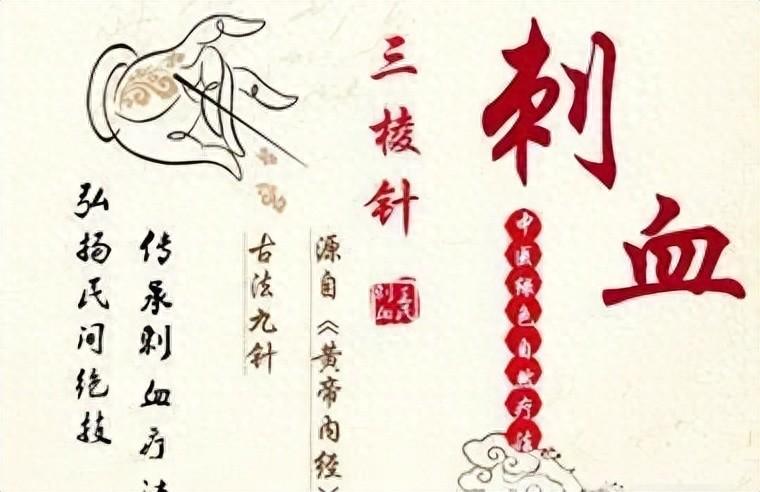 刺
血
中医绿色自然疗法
三棱针
王氏
刺血
源自《黄帝内经》
古法九针
传承刺血疗法
弘扬民间绝技